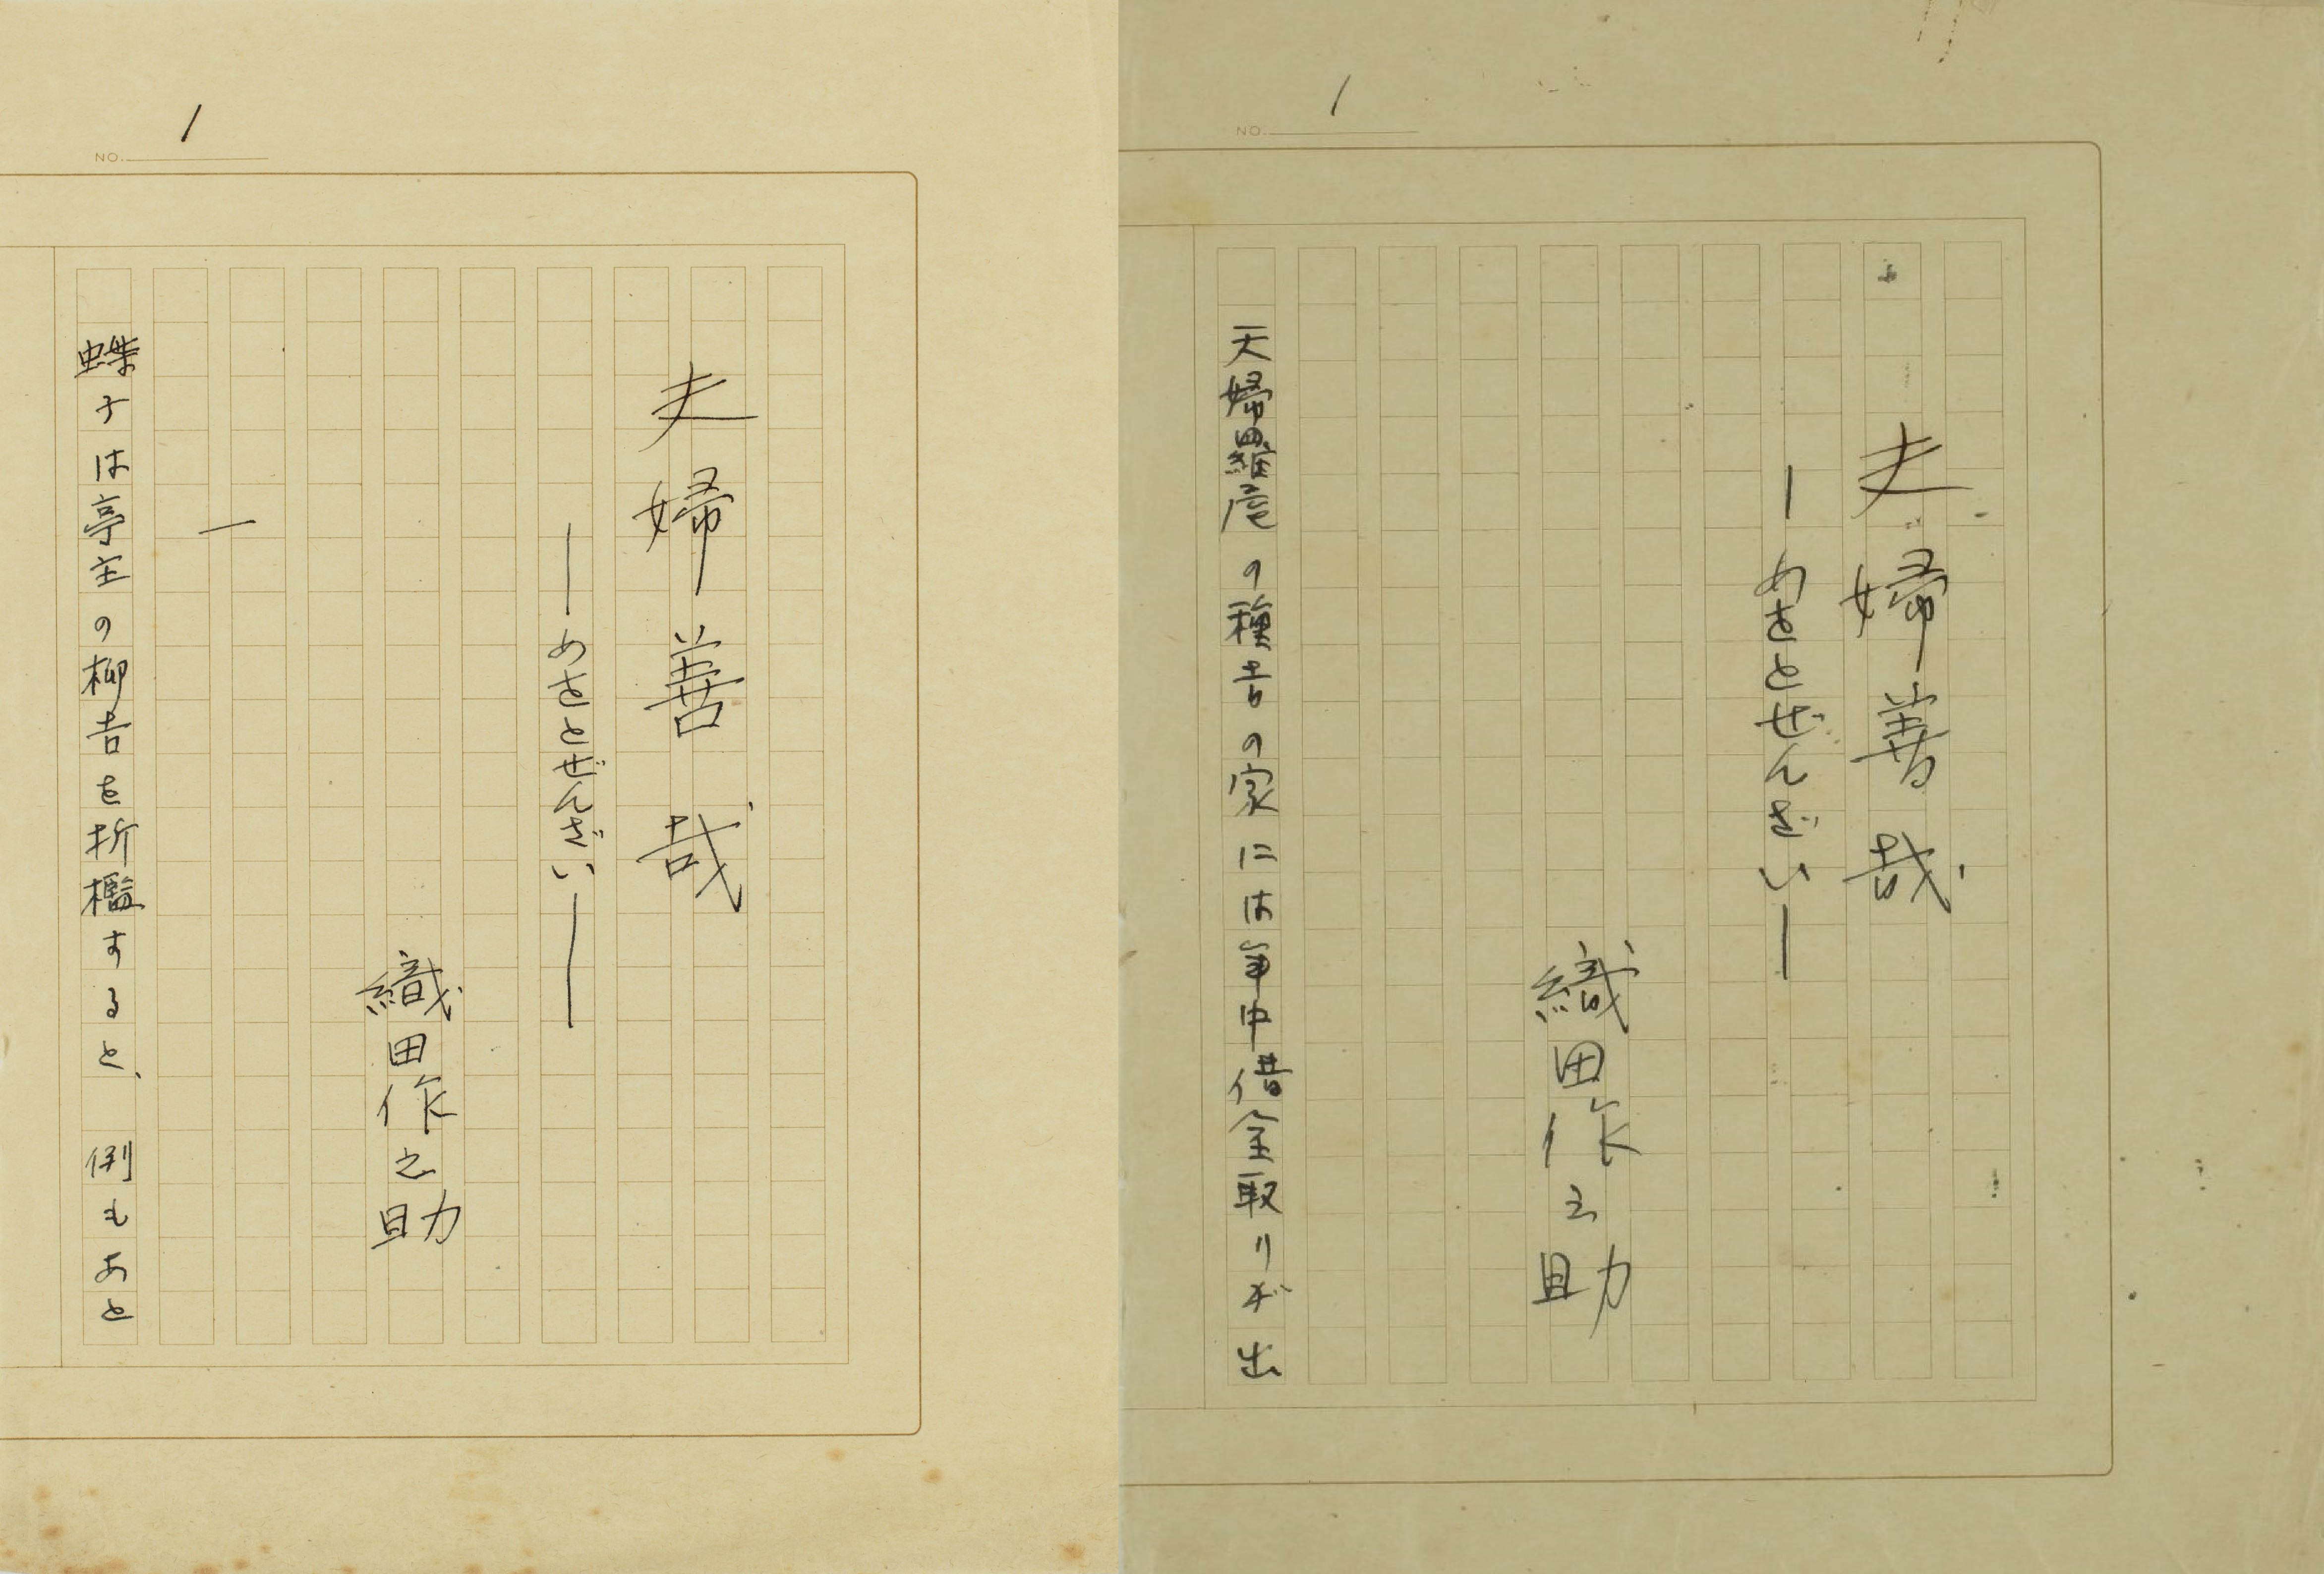 NO. 1
夫婦善哉
―めをとぜんざい―
織田作之助
天婦羅屋の種吉の家には年中借金取りが出
NO. 1
夫婦善哉
――めをとぜんざい――
織田作之助
一
蝶子は亭主の柳吉を折檻すると、例もあと